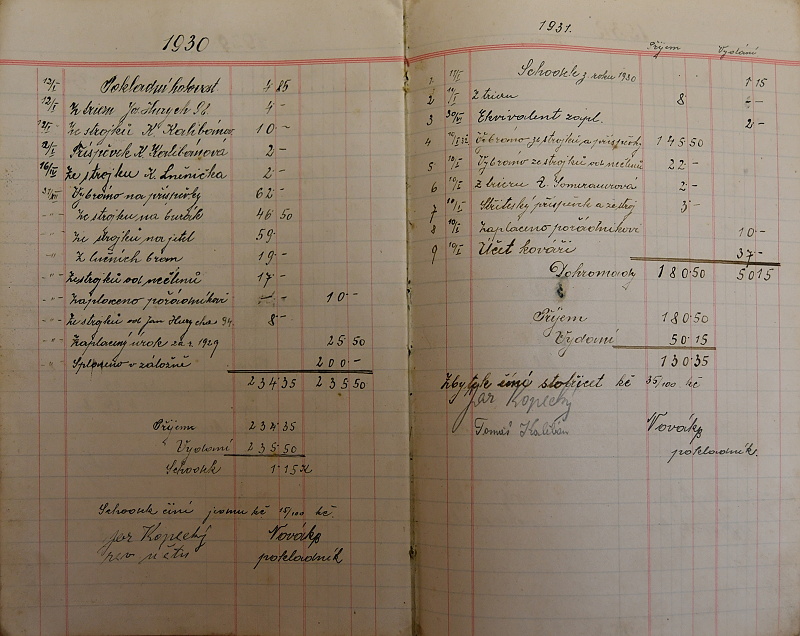 1930
12/I Pokladní hotovost 4 85
12/I Z brian 4 –
12/I Ze strojků K. Kalibánova 10 –
12/I Příspěvek K. Kalibánová 2 –
16/IV Ze strojku K. Lněnička 2 –
Vybráno na příspěvky 62 –
-"- Ze strojku na burák 46 50
-"- Ze strojků na jetel 59 –
-"- Z lučních bran 19 –
-"- Ze strojků od nečlenů 17 –
-"- Zaplaceno pořádníkovi – – 10 –
-"- Ze strojků od Jan 8 –
-"- Zaplacený úrok za r. 1929 25 50
-"- Splaceno v záložně 200 –
234 35 235 50
Příjem 234 35
Vydání 235 50
Schodek 1 15
Schodek činí jednu kč 15/100 kč.
Jar Kopecký Novák
pokladník
1931.
Příjem Vydání
1 Schodek z roku 1930 1 15
2 Z trieru 8 – –
3 Ekvivalent zápl. 2 –
4 Vybráno ze strojků a příspěvků 145 50
5 Vybráno ze strojků od nečlenů 22 –
6 Z trieru A. Someraurová 2 –
7 Střítecký příspěvek a ze stroj 3 –
8 Zaplaceno pořádníkovi 10 –
9 Účet kováři 37 –
Dohromady 180 50 50 15
Příjem 180 50
Vydání 50 15
130 35
Zbytek činí stotřicet kč 35/100 kč
Jar Kopecký
Tomáš Kalibán Novák
pokladník.